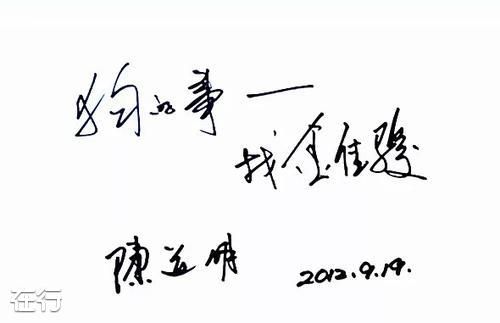 狗的事一
找金佳骏
陳道明 2012.9.19.
在行